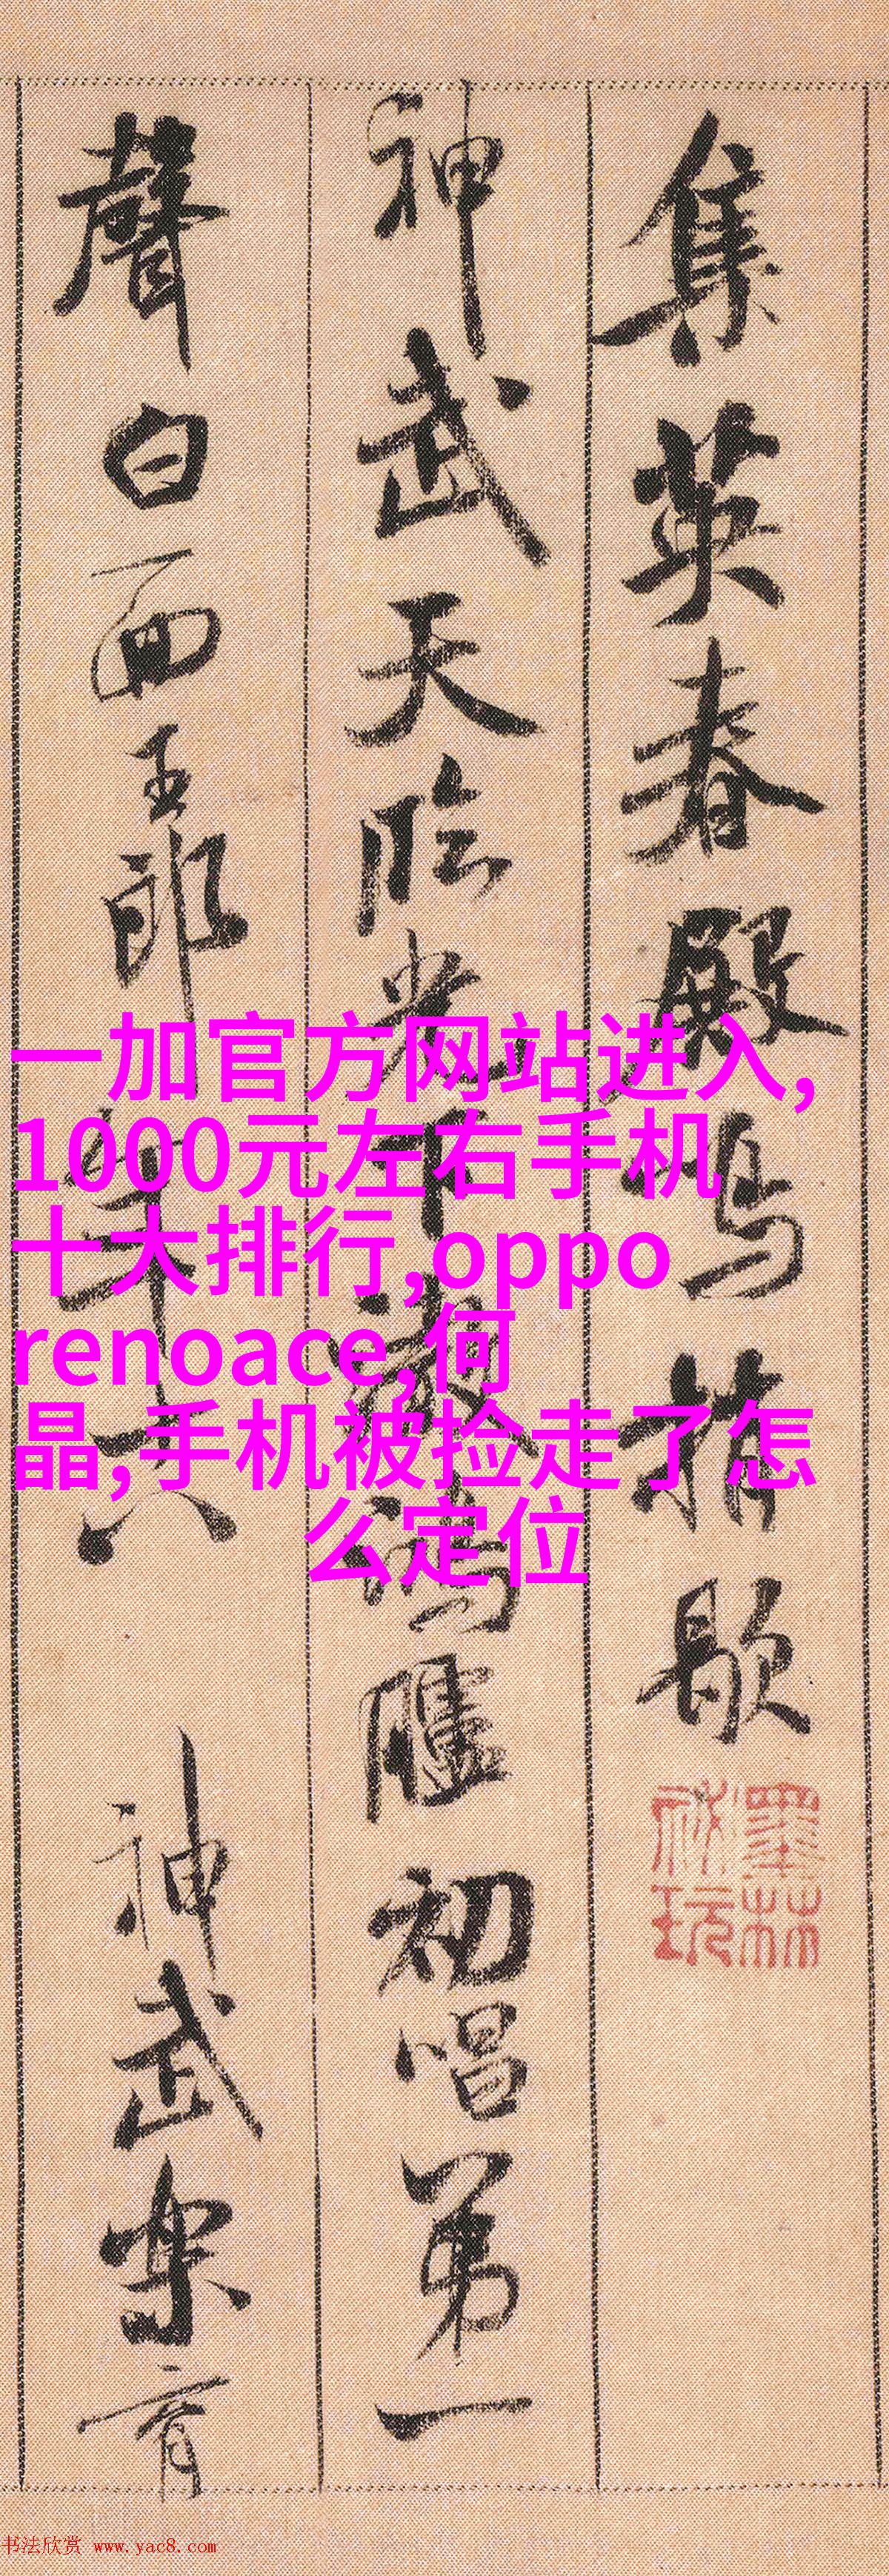 集英春殿鳴捎歇
神武天臨光下澈鴻臚初唱第一
聲白面王郎年十八 神武樂育
墨林
秘玩
一加官方网站进入,
1000元左右手机
十大排行,oppo
renoace,何
晶,手机被捡走了怎
么定位
书法欣赏 www.yac8.com